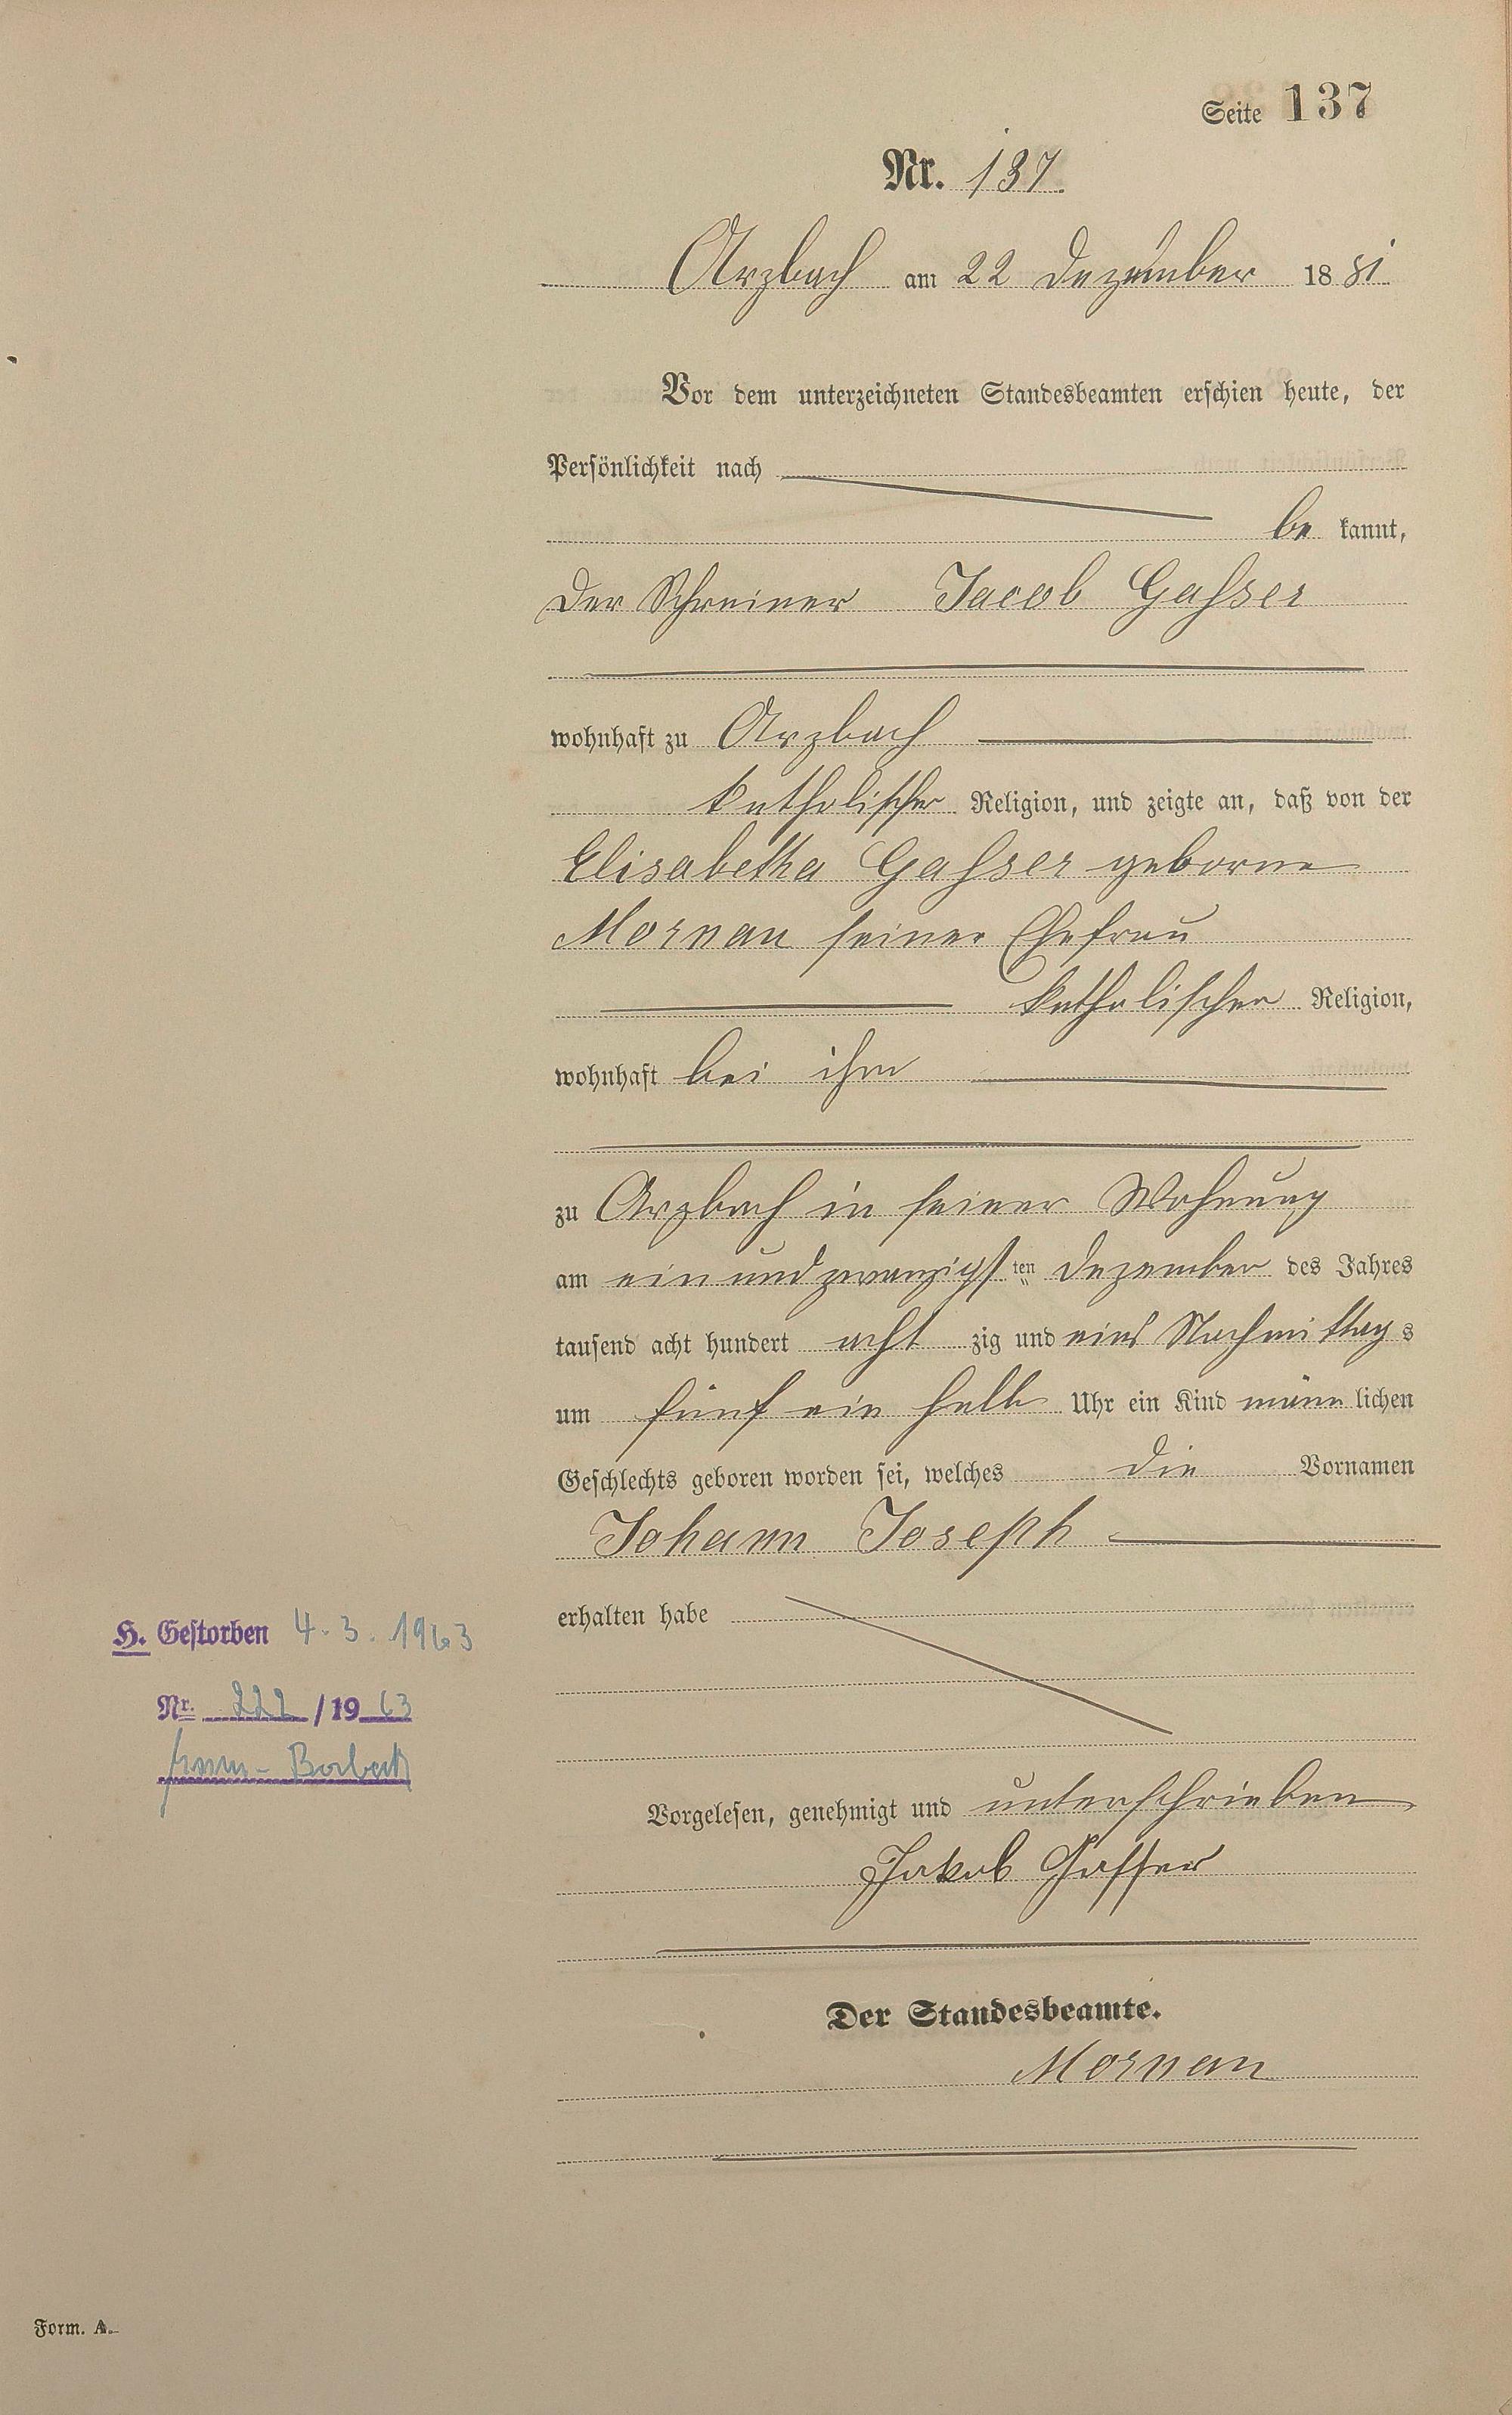 Seite 137
Nr. 137.
Arzbach am 22 Dezember 1881
Vor dem unterzeichneten Standesbeamten erschien heute, der
Persönlichkeit nach
be kannt,
der Schreiner Jacob Gaſser
wohnhaft zu Arzbach
katholischer Religion, und zeigte an, daß von der
Elisabetha Gaſser geborne
Mornau seiner Ehefrau
katholischer Religion,
wohnhaft bei ihm
zu Arzbach in seiner Wohnung
am ein und zwanzigsten Dezember des Jahres
tausend acht hundert acht zig und eins Nachmittags
um fünf ein halb Uhr ein Kind männlichen
Geschlechts geboren worden sei, welches die Vornamen
Johann Joseph
erhalten habe
H. Gestorben 4.3.1963
Nr. 222/1963
Essen-Borbeck
Vorgelesen, genehmigt und unterschrieben
Jakob Gasser
Der Standesbeamte.
Mornau
Form. A.